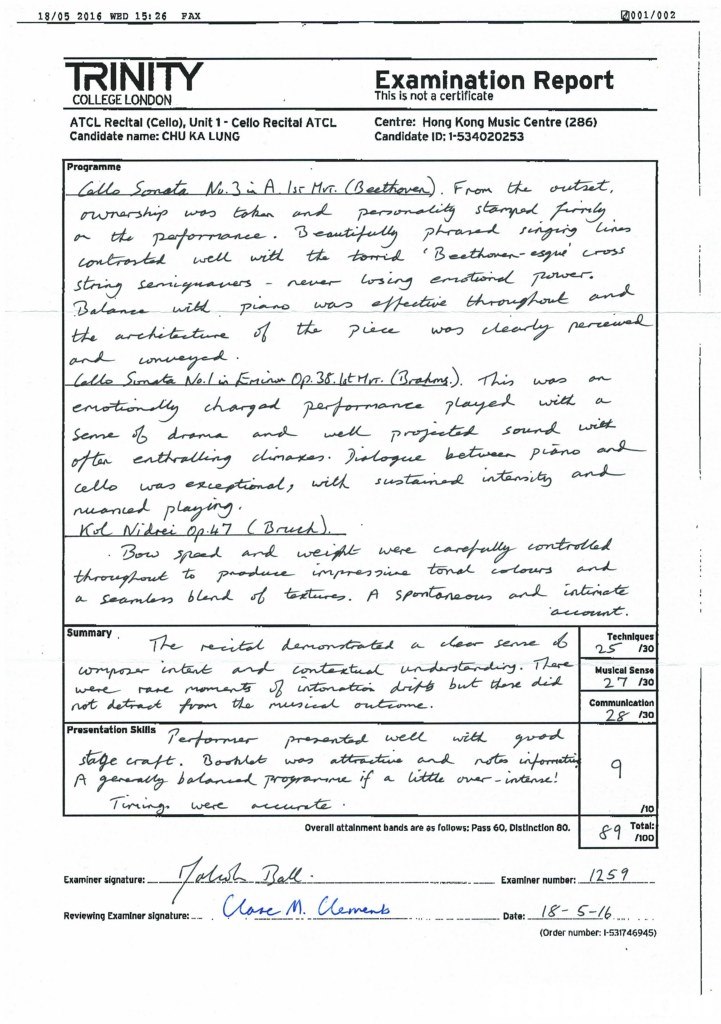 18/05 2016 WED 15:26 FAX
001/002
TRINITY
COLLEGE LONDON
Examination Report
This is not a certificate
ATCL Recital (Cello), Unit 1 - Cello Recital ATCL
Candidate name: CHU KA LUNG
Centre: Hong Kong Music Centre (286)
Candidate ID: 1-534020253
Programme
Cello Sonata No.3 in A. 1st Mvt. (Beethoven). From the outset,
ownership was taken and personality stamped firmly
on the performance. Beautifully phrased singing lines
contrasted well with the torrid 'Beethoven-esque' cross
string semiquavers - never losing emotional power.
Balance with piano was effective throughout and
the architecture of the piece was clearly perceived
and conveyed.
Cello Sonata No.1 in E minor Op.38. 1st Mvt. (Brahms.). This was an
emotionally charged performance played with a
sense of drama and well projected sound with
often enthralling climaxes. Dialogue between piano and
cello was exceptional, with sustained intensity and
nuanced playing.
Kol Nidrei Op.47 (Bruch).
Bow speed and weight were carefully controlled
throughout to produce impressive tonal colours and
a seamless blend of textures. A spontaneous and intimate
account.
Summary
The recital demonstrated a clear sense of
composer intent and contextual understanding. There
were rare moments of intonation drifts but these did
not detract from the musical outcome.
Techniques
25 /30
Musical Sense
27 /30
Communication
28 /30
Presentation Skills
Performer presented well with good
stage craft. Booklet was attractive and notes informative
A generally balanced programme if a little over-intense!
Timings were accurate.
9
/10
Overall attainment bands are as follows: Pass 60, Distinction 80.
89 Total:
/100
Examiner signature: Malcolm Ball.
Examiner number: 1259
Reviewing Examiner signature: Clare M. Clements
Date: 18-5-16
(Order number: 1-531746945)